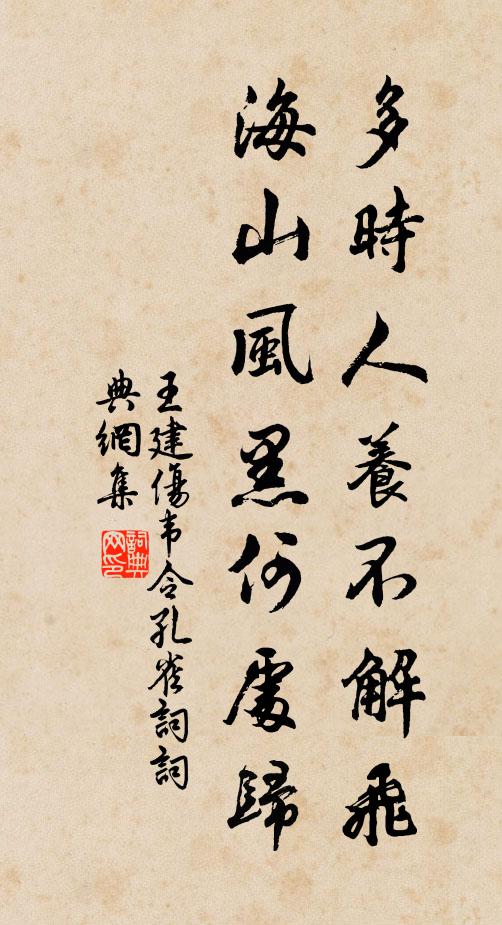 多時人養不解飛
海山風黑何處歸
王建傷韦令孔雀詞詞
典網集
詞典网印